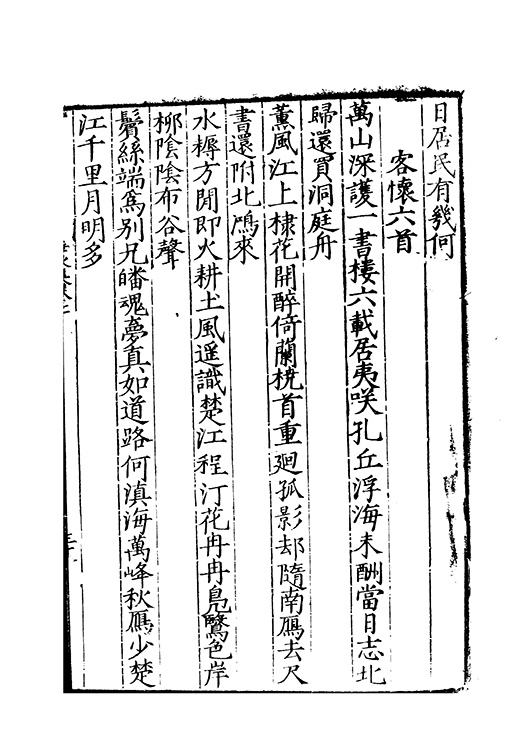 日居民有幾何
客懷六首
萬山深護一書樓六載居夷咲孔丘浮海未酬當日志北
歸還買洞庭舟
薰風江上棣花開醉倚蘭橈首重廻孤影却隨南鴈去尺
書還附北鴻來
水耨方閒即火耕土風遥識楚江程汀花冉冉鳧鷖色岸
柳陰陰布谷聲
鬢絲端爲別兄皤魂夢真如道路何滇海萬峰秋鴈少楚
江千里月明多